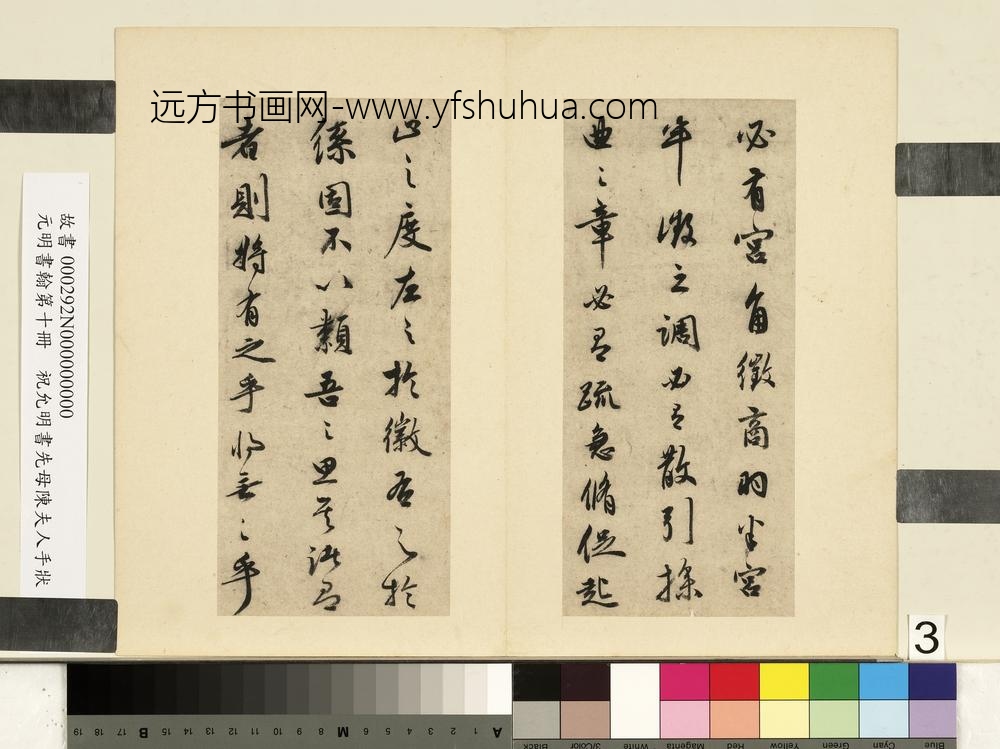 远方书画网-www.yfshuhua.com
必有宮角徵商羽半宮
半徵之調必有散引操
曲之章必有疏急脩促起
止之度左之於徽右之於
固不以類吾之思其
者則將有之乎將無之乎
故書 000292N000000000
元明書翰第十冊 祝允明書先母陳夫人手狀
3
A 1 2 3 4 5 6 7 M 8 9 10 11 12 13 14 15 B 17 18 19
Blue Cyan Green Yellow Red Magenta White 3/Color Black